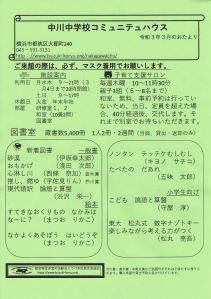 中川中学校コミュニティハウス
令和3年3月のおたより
横浜市都筑区大棚町240
045-591-3131
ご来館の際は、必ず、マスク着用でお願いします。
施設案内
利用日 月水木 9～21時(3
月4日まで20時閉館)
土日 9～17時
休館日 火金 年末年始
部屋 研修室1、2
和室(10畳2間)
図書室
子育て支援サロン
毎週木曜 10～11時30分
親子3組(6～8名まで)
和室、無料、事前予約は行ってい
ない為、当日、定員を超えた場
合、40分経過後、交代します。そ
れまで別室でお待ちいただきます。
図書室 蔵書数5,400冊 1人2冊・2週間
新着図書
一般書
砂漠 (伊坂幸太郎)
おもかげ (浅田次郎)
心淋し川 (西條奈加)
推し、燃ゆ (宇佐見りん)
現代語訳 論語と算盤
(渋沢栄一)
絵本
すてきなおくりもの なかみは
なーに? (まつお りかこ)
なかよくあそぼう はいどうぞ
(まつお りかこ)
ノンタン テッテケむしむし
(キヨノ サチコ)
たべたの だあれ
(五味 太郎)
小学生向け
こども 論語と算盤
(守屋 淳)
東大 松丸式 数字ナゾトキー
楽しみながら考える力がつく
(松丸 亮吾)